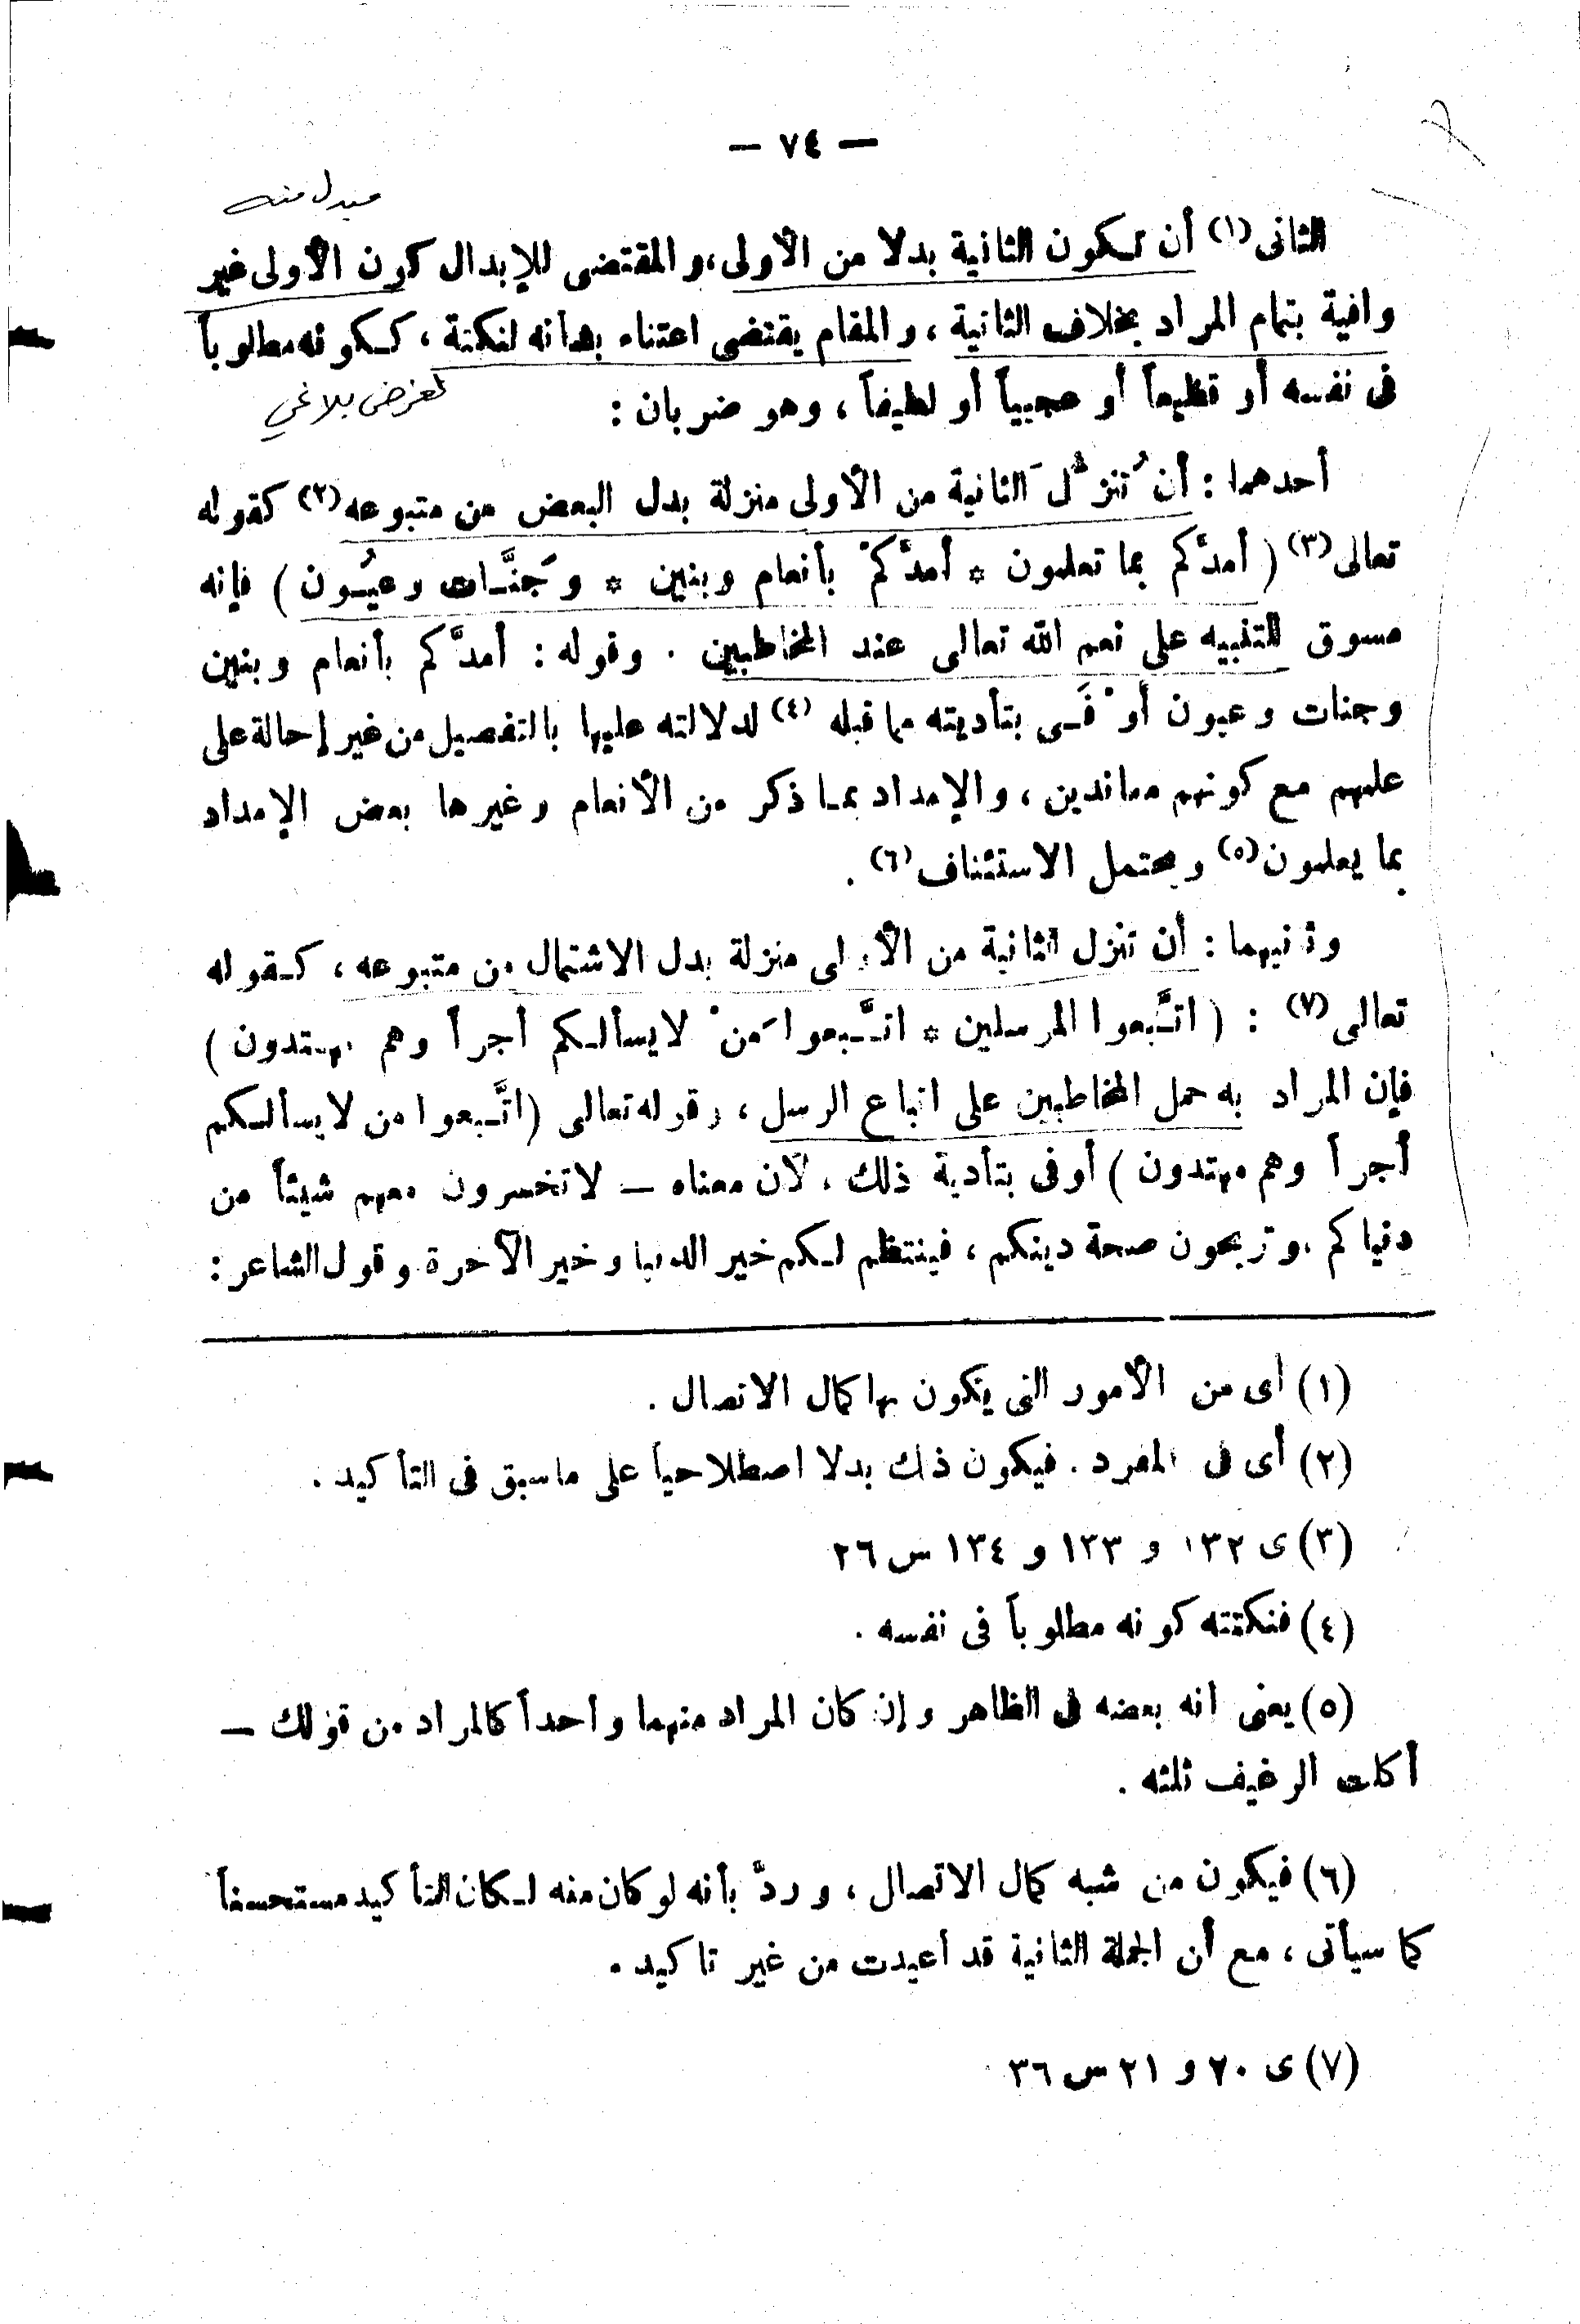 — ٧٤ —
مبدل منه
الثانى (١) أن تـكون الثانية بدلا من الأولى، والمقتضى للإبدال كون الأولى غير
وافية بتمام المراد بخلاف الثانية ، والمقام يقتضى اعتناء بشأنه لنكتة ، كـكونه مطلوباً
فى نفسه أو فظيعاً أو عجيباً أو لطيفاً ، وهو ضربان :
لغرض بلاغي
أحدهما : أن تُنزَّلَ الثانية من الأولى منزلة بدل البعض من متبوعه (٢) كقوله
تعالى (٣) ( أمدَّكم بما تعلمون * أمدَّكمْ بأنعام وبنين * وَجنَّـات وعيُـون ) فإنه
مسوق للتنبيه على نعم الله تعالى عند المخاطبين . وقوله : أمدَّكم بأنعام وبنين
وجنات وعيون أوْفَـى بتأديته مما قبله (٤) لدلالته عليها بالتفصيل من غير إحالة على
علمهم مع كونهم معاندين ، والإمداد بمـا ذكر من الأنعام وغيرها بعض الإمداد
بما يعلمون (٥) ويحتمل الاستئناف (٦) .
وثانيهما : أن تنزل الثانية من الأولى منزلة بدل الاشتمال من متبوعه ، كـقوله
تعالى (٧) : ( اتَّـبعوا المرسلين * اتـَّـبعوا مَنْ لا يسألـكم أجراً وهم مهـتدون )
فإن المراد به حمل المخاطبين على اتباع الرسل ، وقوله تعالى ( اتَّـبعوا من لا يسألـكم
أجراً وهم مهتدون ) أوفى بتأدية ذلك ، لأن معناه — لا تخسرون معهم شيئاً من
دنياكم ، وتربحون صحة دينكم ، فينتظم لـكم خير الدنيا وخير الآخرة . وقول الشاعر :
(١) أى من الأمور التى يكون بها كمال الاتصال .
(٢) أى فى المفرد . فيكون ذلك بدلا اصطلاحياً على ما سبق فى التأكيد .
(٣) ى ١٣٢ و ١٣٣ و ١٣٤ س ٢٦
(٤) فنكتته كونه مطلوباً فى نفسه .
(٥) يعنى أنه بعضه فى الظاهر وإن كان المراد منهما واحداً كالمراد من قولك —
أكلت الرغيف ثلثه .
(٦) فيكون من شبه كمال الاتصال ، وردَّ بأنه لو كان منه لـكان التأكيد مستحسناً
كما سيأتى ، مع أن الجملة الثانية قد أعيدت من غير تاكيد .
(٧) ى ٢٠ و ٢١ س ٣٦